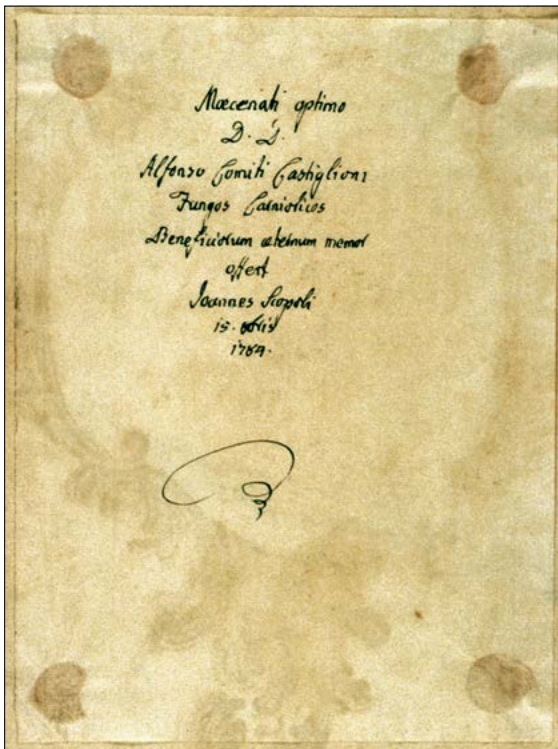 Mæcenati optimo
D. D.
Alfonso Comiti Castiglioni
Fungos Carniolicos
Beneficiorum æternum memor
offert
Joannes Scopoli
15. 8bris
1784.